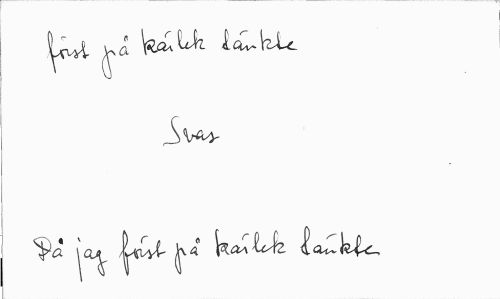 först på kärlek tänkte
Svas
Då jag först på kärlek tänkte